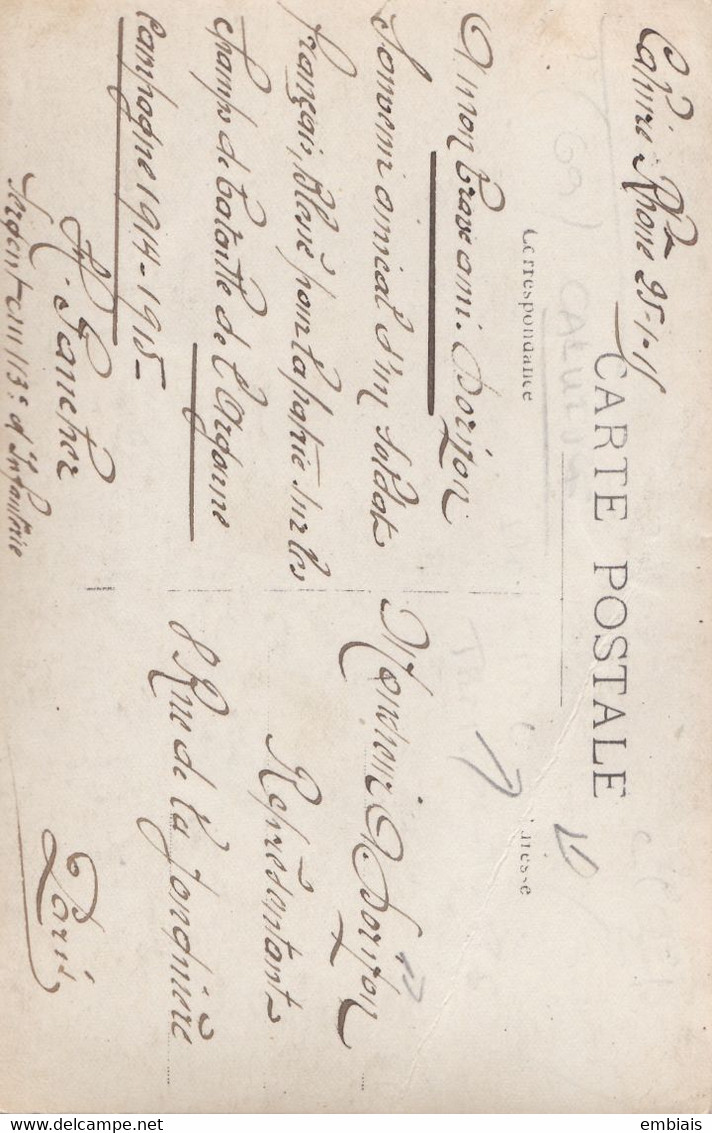 Caluire Rhône 25-1-15
CARTE POSTALE
Correspondance
A mon brave ami. Dorizon
Souvenir amical d'un Soldat
français, blessé pour la patrie sur les
champs de bataille de l'Argonne
Campagne 1914-1915-
Sergent au 113e d'Infanterie
Monsieur Dorizon
Représentant
8 Rue de la Jonquière
Paris
(69) CALUIRE
embiais